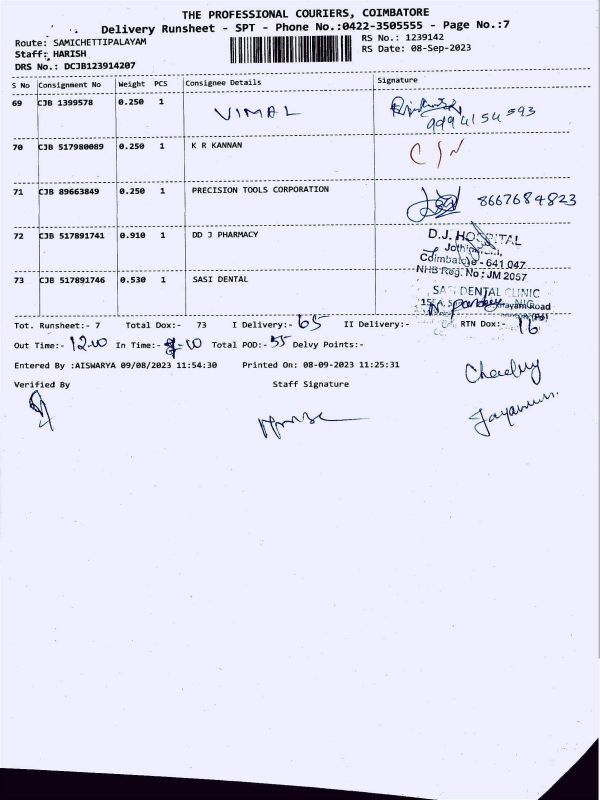 THE PROFESSIONAL COURIERS, COIMBATORE
Delivery Runsheet - SPT - Phone No.:0422-3505555 - Page No.:7
Route: SAMICHETTIPALAYAM RS No.: 1239142
Staff: HARISH RS Date: 08-Sep-2023
DRS No.: DCJB123914207
S No Consignment No Weight PCS Consignee Details Signature
69 CJB 1399578 0.250 1 VIMAL
9994154593
70 CJB 517980089 0.250 1 K R KANNAN
71 CJB 89663849 0.250 1 PRECISION TOOLS CORPORATION 8667684823
72 CJB 517891741 0.910 1 DD J PHARMACY D.J. HOSPITAL
Coimbatore - 641 047
NHB Reg. No: JM 2057
73 CJB 517891746 0.530 1 SASI DENTAL
SASI DENTAL CLINIC
Tot. Runsheet:- 7 Total Dox:- 73 I Delivery:- 65 II Delivery:- RTN Dox:- 16
Out Time:- 12.00 In Time:- Total POD:- 55 Delvy Points:-
Entered By :AISWARYA 09/08/2023 11:54:30 Printed On: 08-09-2023 11:25:31
Verified By Staff Signature